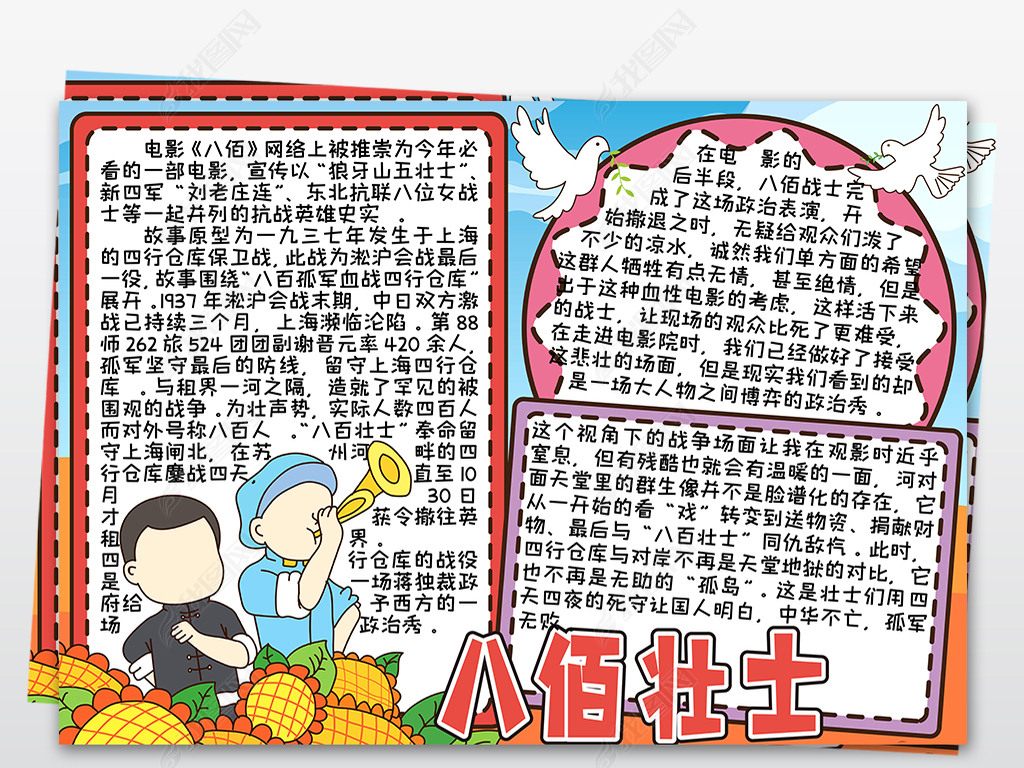 电影《八佰》网络上被推崇为今年必
看的一部电影，宣传以“狼牙山五壮士”、
新四军“刘老庄连”、东北抗联八位女战
士等一起并列的抗战英雄史实 。
故事原型为一九三七年发生于上海
的四行仓库保卫战,此战为淞沪会战最后
一役,故事围绕“八百孤军血战四行仓库”
展开 .1937 年淞沪会战末期，中日双方激
战已持续三个月，上海濒临沦陷 。第 88
师 262 旅 524 团团副谢晋元率 420 余人，
孤军坚守最后的防线，留守上海四行仓
库 。与租界一河之隔，造就了罕见的被
围观的战争 。为壮声势，实际人数四百人
而对外号称八百人 。“八百壮士”奉命留
守上海闸北，在苏 州河 畔的四
行仓库鏖战四天 直至 10
月 30 日
才 获令撤往英
租 界 。
四 行仓库的战役
是 一场蒋独裁政
府给 予西方的一
场 政治秀 。
在电 影的
后半段，八佰战士完
成了这场政治表演，开
始撤退之时，无疑给观众们泼了
不少的凉水，诚然我们单方面的希望
这群人牺牲有点无情，甚至绝情，但是
出于这种血性电影的考虑，这样活下来
的战士，让现场的观众比死了更难受，
在走进电影院时，我们已经做好了接受
这悲壮的场面，但是现实我们看到的却
是一场大人物之间博弈的政治秀 。
这个视角下的战争场面让我在观影时近乎
窒息，但有残酷也就会有温暖的一面，河对
面天堂里的群生像并不是脸谱化的存在，它
从一开始的看“戏”转变到送物资、捐献财
物、最后与“八百壮士”同仇敌忾 。此时，
四行仓库与对岸不再是天堂地狱的对比，它
也不再是无助的“孤岛”。这是壮士们用四
天四夜的死守让国人明白，中华不亡，孤军
无败
八佰壮士